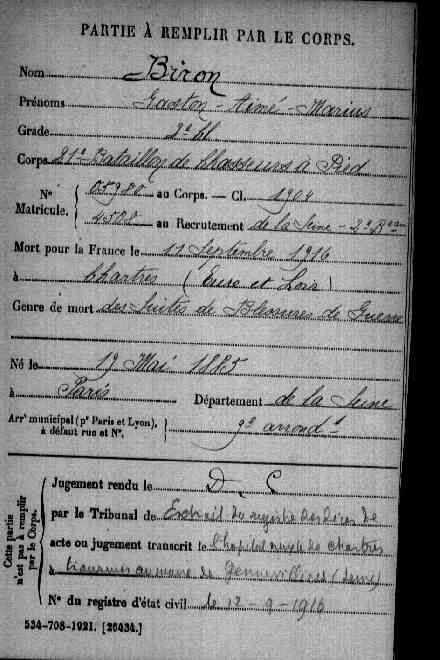 PARTIE À REMPLIR PAR LE CORPS.
Nom Biron
Prénoms Gaston - Aimé - Marius
Grade 2e cl
Corps 21e Bataillon de Chasseurs à Pied
N° Matricule. 05980 au Corps. — Cl. 1904
4508 au Recrutement de la Seine - 2e Beau
Mort pour la France le 11 Septembre 1916
à Chartres (Eure et Loir)
Genre de mort des Suites de Blessures de Guerre
Né le 19 Mai 1885
à Paris Département de la Seine
Arrt municipal (pr Paris et Lyon), à défaut rue et N°. 9e arrondt
Cette partie n'est pas à remplir par le Corps.
Jugement rendu le D. C
par le Tribunal de Extrait du registre des décès de
acte ou jugement transcrit le l'hopital de Chartres
à transmis au maire de Gennevilliers (Seine)
N° du registre d'état civil le 12 - 9 - 1916
534-708-1921. [26434.]